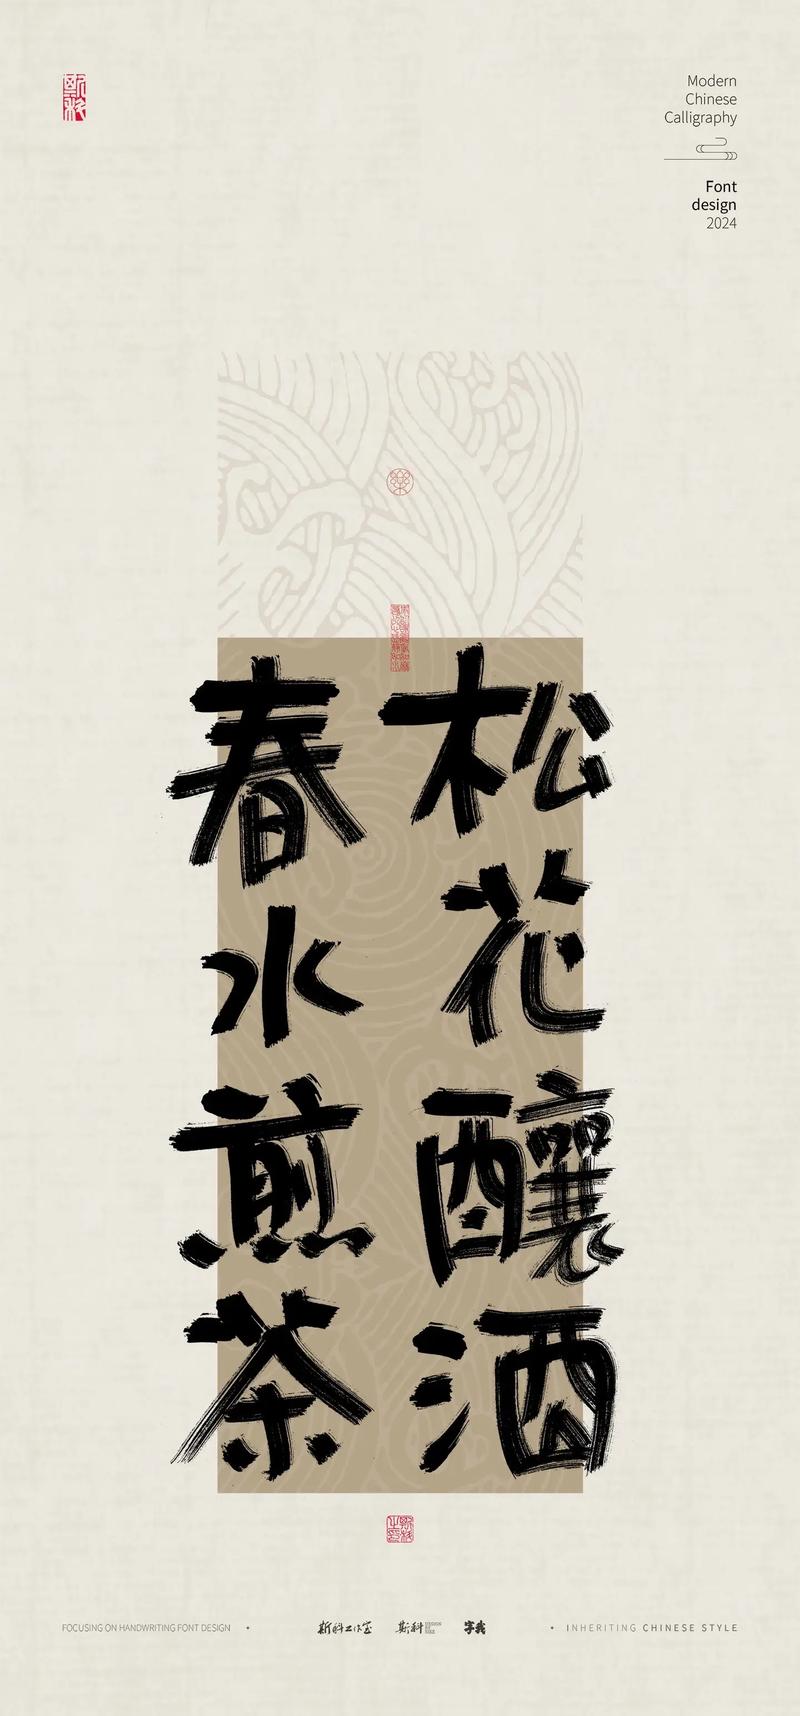 Modern
Chinese
Calligraphy
Font
design
2024
松花釀酒
春水煎茶
FOCUSING ON HANDWRITING FONT DESIGN
斯科工作室
斯科
字我
INHERITING CHINESE STYLE